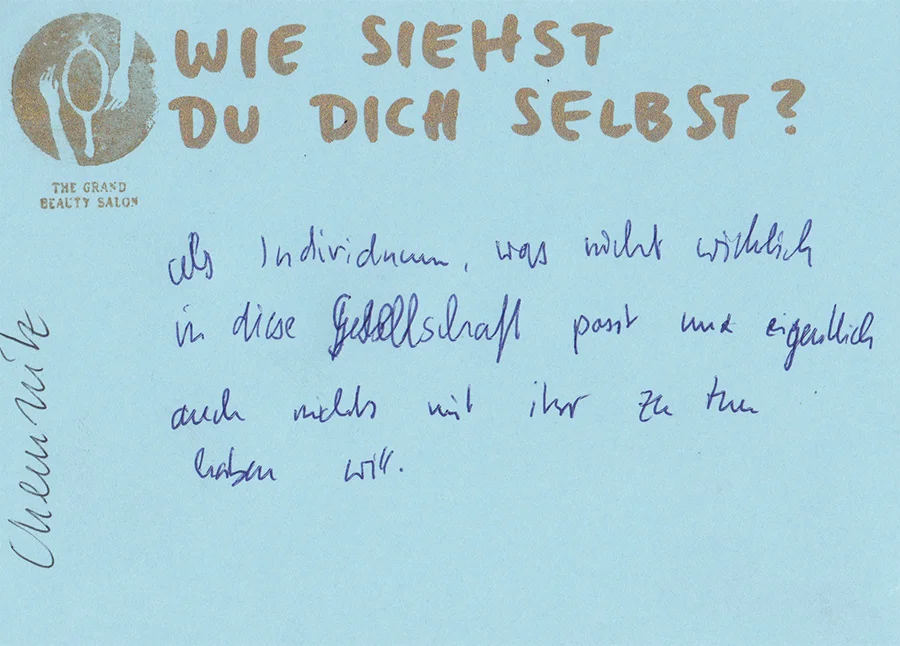 WIE SIEHST
DU DICH SELBST?
THE GRAND
BEAUTY SALON
als Individuum, was nicht wirklich
in diese Gesellschaft passt und eigentlich
auch nichts mit ihr zu tun
haben will.
Chemnitz